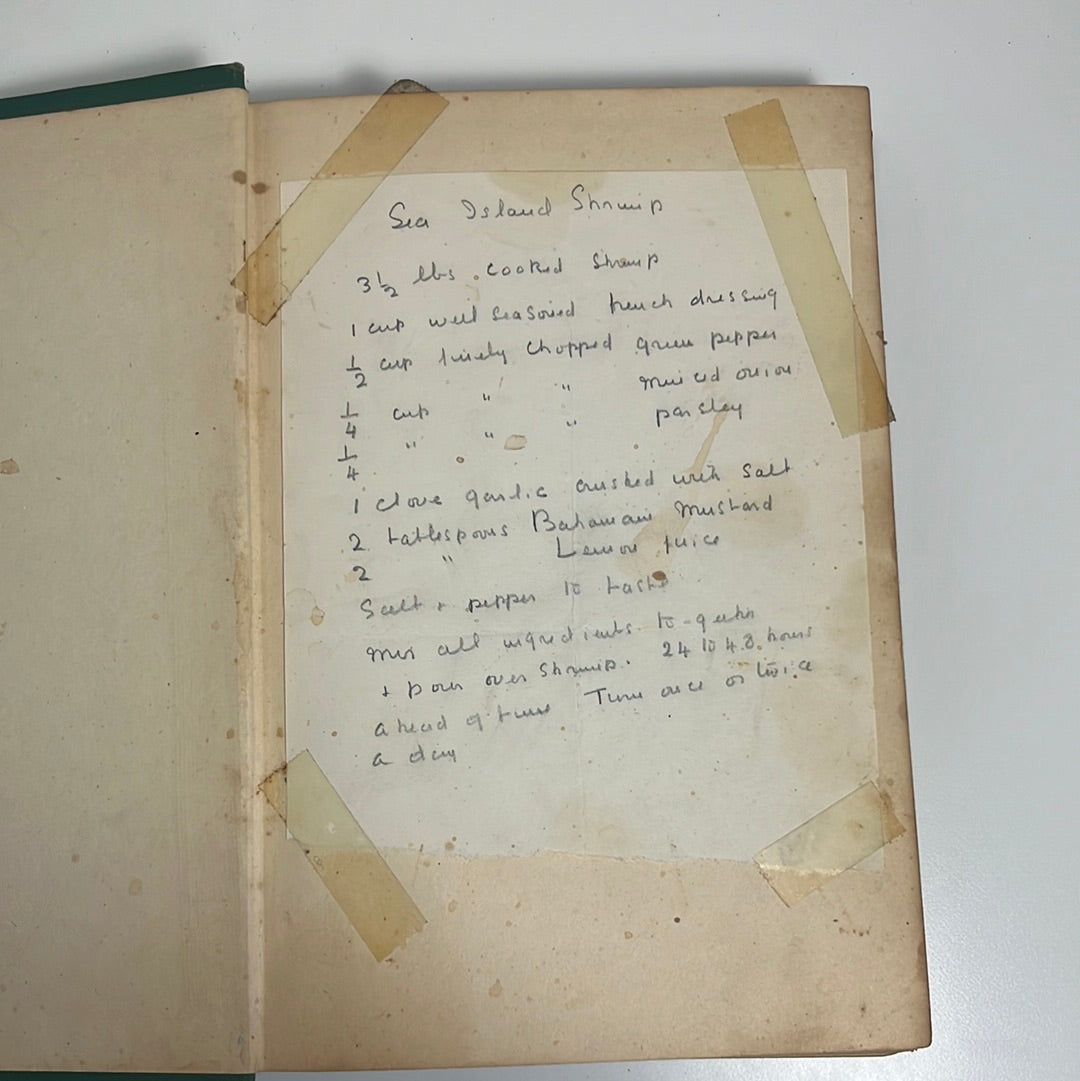 Sea Island Shrimp
3 1/2 lbs. cooked shrimp
1 cup well seasoned french dressing
1/2 cup finely chopped green pepper
1/4 cup " " minced onion
1/4 " " " parsley
1 clove garlic crushed with salt
2 tablespoons Bahamian Mustard
2 " Lemon juice
Salt + pepper to taste
Mix all ingredients to-gether
+ pour over shrimp. 24 to 48 hours
ahead of time Turn once or twice
a day